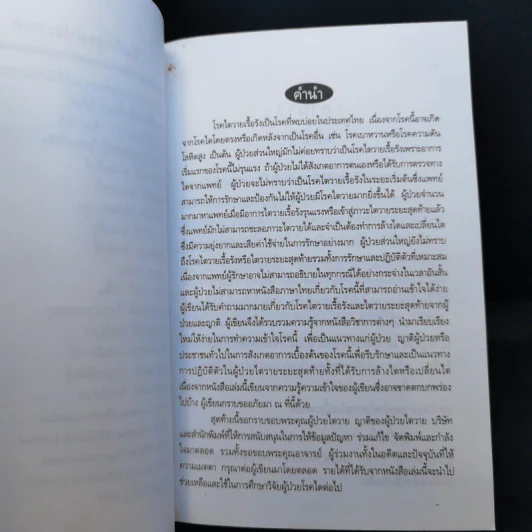 คำนำ
โรคไตวายเรื้อรังเป็นโรคที่พบบ่อยในประเทศไทย เนื่องจากโรคนี้อาจเกิด
จากโรคไตโดยตรงหรือเกิดหลังจากเป็นโรคอื่น เช่น โรคเบาหวานหรือโรคความดัน
โลหิตสูง เป็นต้น ผู้ป่วยส่วนใหญ่มักไม่ค่อยทราบว่าเป็นโรคไตวายเรื้อรังเพราะอาการ
เริ่มแรกของโรคนี้ไม่รุนแรง ถ้าผู้ป่วยไม่ได้สังเกตอาการตนเองหรือได้รับการตรวจทาง
ไตจากแพทย์ ผู้ป่วยจะไม่ทราบว่าเป็นโรคไตวายเรื้อรังในระยะเริ่มต้นซึ่งแพทย์
สามารถให้การรักษาและป้องกันไม่ให้ผู้ป่วยมีโรคไตวายมากยิ่งขึ้นได้ ผู้ป่วยจำนวน
มากมาหาแพทย์เมื่อมีอาการไตวายเรื้อรังรุนแรงหรือเข้าสู่ภาวะไตวายระยะสุดท้ายแล้ว
ซึ่งแพทย์มักไม่สามารถชะลอภาวะไตวายได้และจำเป็นต้องทำการล้างไตและเปลี่ยนไต
ซึ่งมีความยุ่งยากและเสียค่าใช้จ่ายในการรักษาอย่างมาก ผู้ป่วยส่วนใหญ่ยังไม่ทราบ
ถึงโรคไตวายเรื้อรังหรือไตวายระยะสุดท้ายรวมทั้งการรักษาและปฏิบัติตัวที่เหมาะสม
เนื่องจากแพทย์ผู้รักษาอาจไม่สามารถอธิบายในทุกกรณีได้อย่างกระจ่างในเวลาอันสั้น
และผู้ป่วยไม่สามารถหาหนังสือภาษาไทยเกี่ยวกับโรคนี้ที่สามารถอ่านเข้าใจได้ง่าย
ผู้เขียนได้รับคำถามมากมายเกี่ยวกับโรคไตวายเรื้อรังและไตวายระยะสุดท้ายจากผู้
ป่วยและญาติ ผู้เขียนจึงได้รวบรวมความรู้จากหนังสือวิชาการต่างๆ นำมาเรียบเรียง
ใหม่ให้ง่ายในการทำความเข้าใจโรคนี้ เพื่อเป็นแนวทางแก่ผู้ป่วย ญาติผู้ป่วยหรือ
ประชาชนทั่วไปในการสังเกตอาการเบื้องต้นของโรคนี้เพื่อรีบรักษาและเป็นแนวทาง
การปฏิบัติตัวในผู้ป่วยไตวายระยะสุดท้ายทั้งที่ได้รับการล้างไตหรือเปลี่ยนไต
เนื่องจากหนังสือเล่มนี้เขียนจากความรู้ความเข้าใจของผู้เขียนซึ่งอาจขาดตกบกพร่อง
ไปบ้าง ผู้เขียนกราบขออภัยมา ณ ที่นี้ด้วย
สุดท้ายนี้ขอกราบขอบพระคุณผู้ป่วยไตวาย ญาติของผู้ป่วยไตวาย บริษัท
และสำนักพิมพ์ที่ให้การสนับสนุนในการให้ข้อมูลปัญหา ร่วมแก้ไข จัดพิมพ์และกำลัง
ใจมาตลอด รวมทั้งขอขอบพระคุณอาจารย์ ผู้ร่วมงานทั้งในอดีตและปัจจุบันที่ให้
ความเมตตา กรุณาต่อผู้เขียนมาโดยตลอด รายได้ที่ได้รับจากหนังสือเล่มนี้จะนำไป
ช่วยเหลือและใช้ในการศึกษาวิจัยผู้ป่วยโรคไตต่อไป